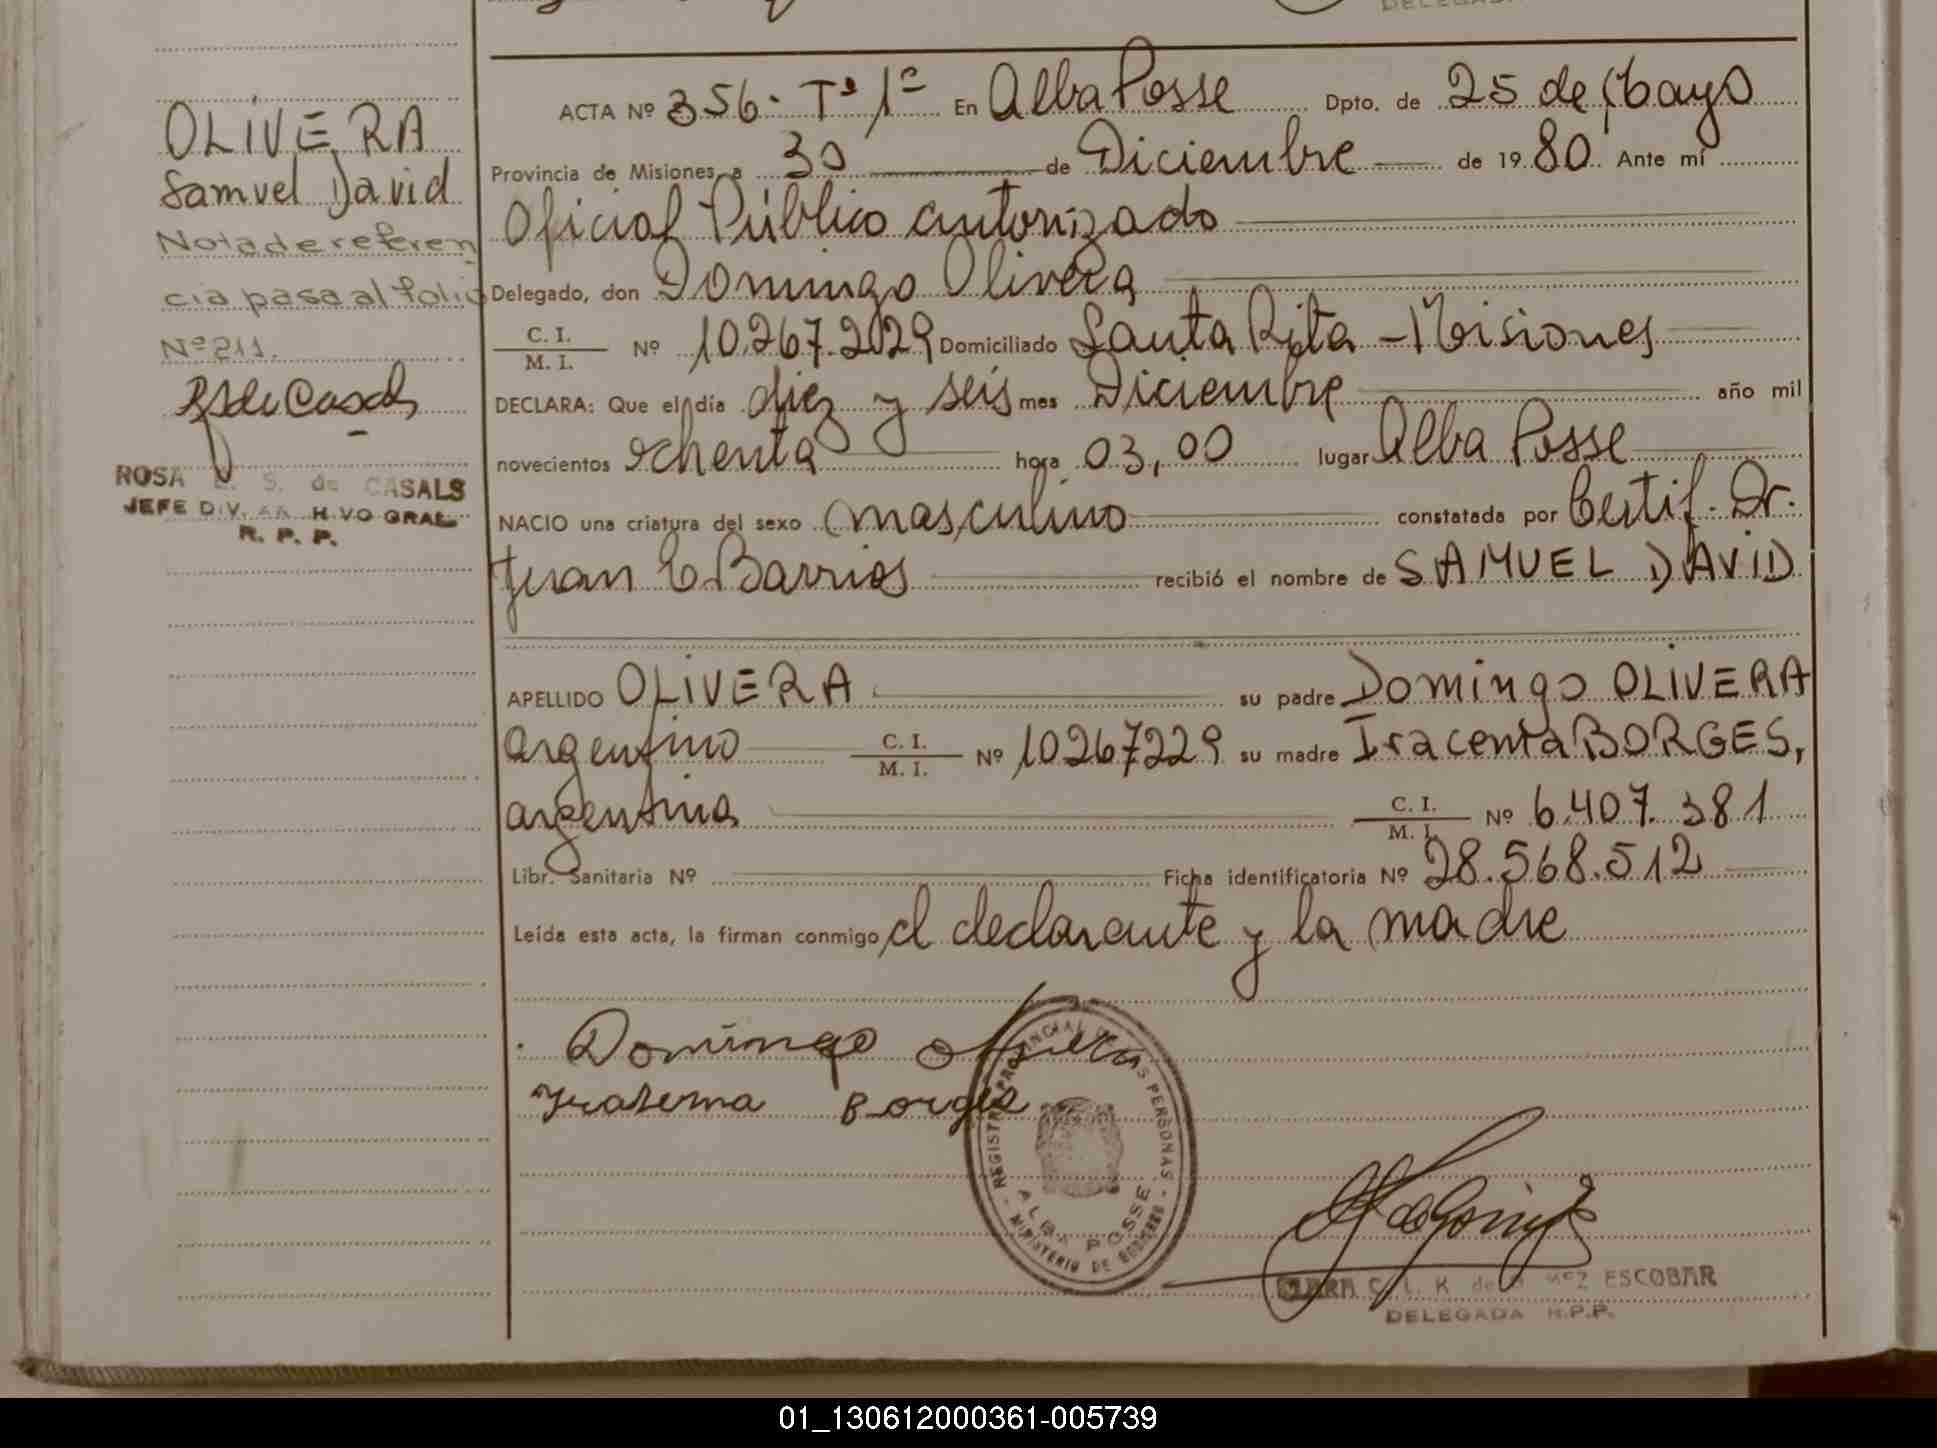 DELEGADA
OLIVERA
Samuel David
Nota de referen
cia pasa al folio
Nº 211.
ROSA E. S. de CASALS
JEFE DIV. ARCHIVO GRAL.
R. P. P.
ACTA Nº 356. Tº 1º En Alba Posse Dpto. de 25 de Mayo
Provincia de Misiones, a 30 de Diciembre de 1980. Ante mí
Oficial Público autorizado
Delegado, don Domingo Olivera
C. I.
M. I. Nº 10.267.229 Domiciliado Santa Rita - Misiones
DECLARA: Que el día diez y seis mes Diciembre año mil
novecientos ochenta hora 03,00 lugar Alba Posse
NACIO una criatura del sexo masculino constatada por Certif. Dr.
Juan C Barrios recibió el nombre de SAMUEL DAVID
APELLIDO OLIVERA su padre Domingo OLIVERA
argentino C. I. M. I. Nº 10267229 su madre Iracenta BORGES,
argentina C. I. M. I. Nº 6.407.381
Libr. Sanitaria Nº Ficha identificatoria Nº 28.568.512
Leída esta acta, la firman conmigo, el declarante y la madre
Domingo Olivera
Borges
REGISTRO PROVINCIAL DE LAS PERSONAS
ALBA POSSE
MINISTERIO DE GOBIERNO
ESCOBAR
DELEGADA R.P.P.
01_130612000361-005739